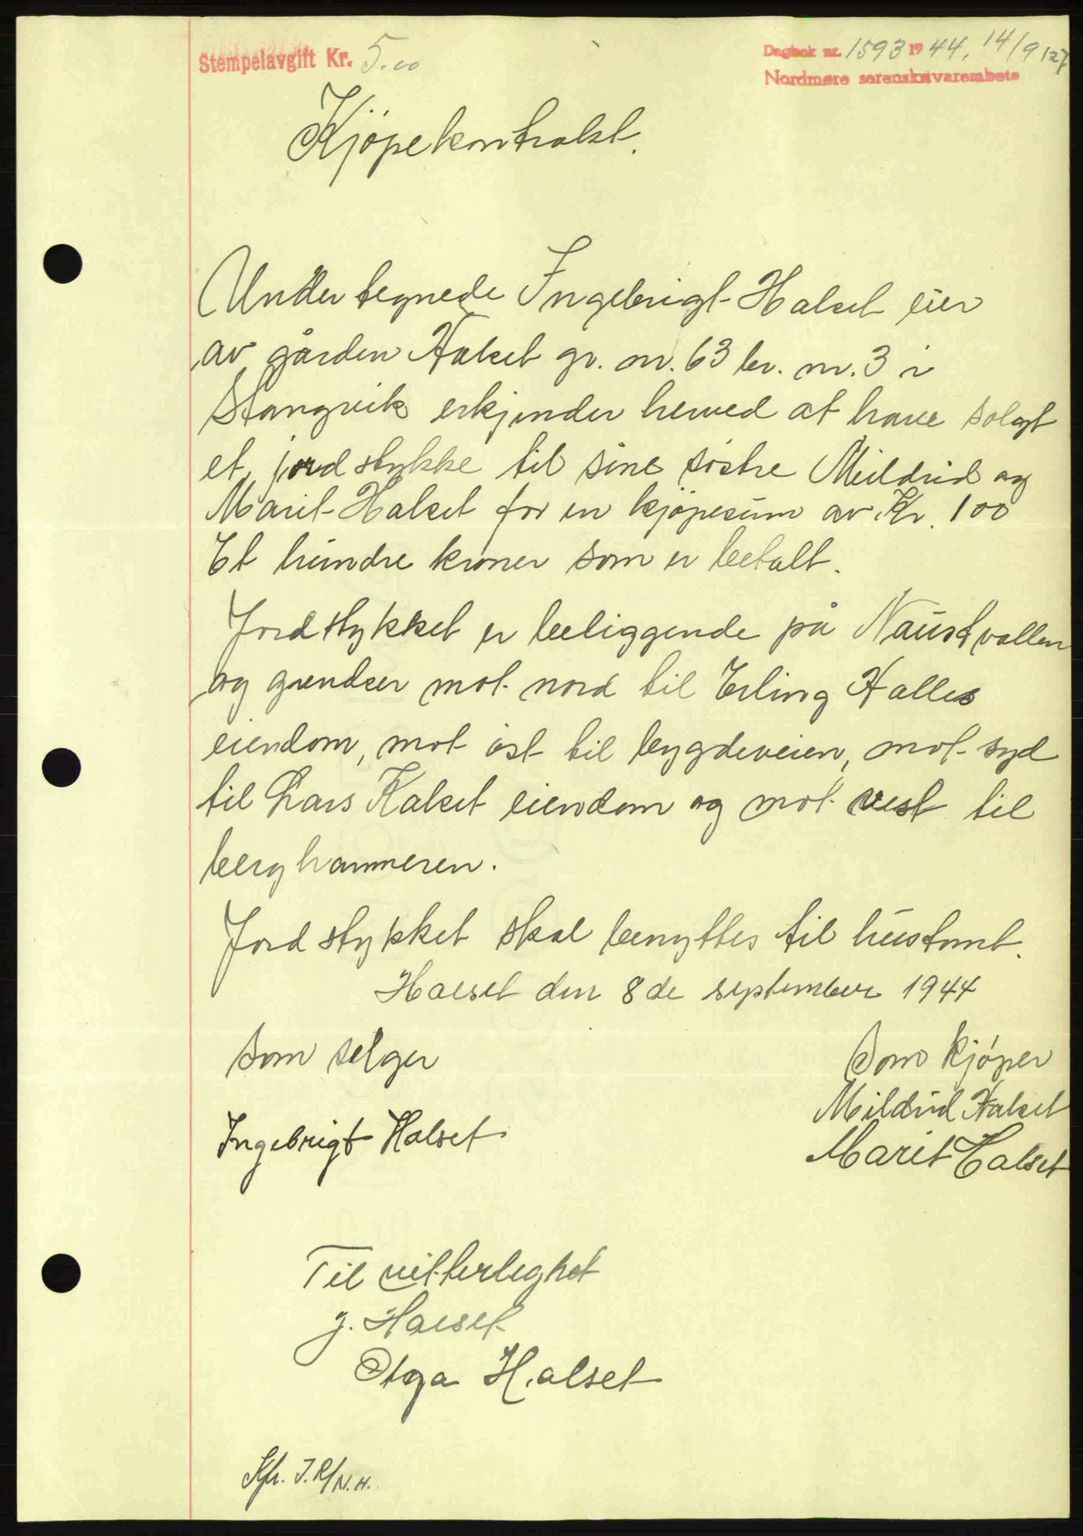 Stempelavgift Kr. 5.00
Dagbok nr. 1593 1944, 14/9 127
Nordmøre sorenskriverembete
Kjöpekontrakt.
Undertegnede Ingebrigt Halset eier
av gården Halset gr. nr. 63 br. nr. 3 i
Stangvik erkjender herved at have solgt
et jordstykke til sine söstre Mildrid og
Marit Halset for en kjöpesum av Kr. 100
Et hundre kroner som er betalt.
Jordstykket er beliggende på Naustvollen
og grendser mot nord til Erling Halles
eiendom, mot öst til bygdeveien, mot syd
til Lars Halset eiendom og mot vest til
berghammeren.
Jordstykket skal benyttes til hustomt.
Halset den 8de september 1944
Som selger
Som kjöper
Mildrid Halset
Ingebrigt Halset
Marit Halset
Til vitterlighet
J. Halset
Olga Halset